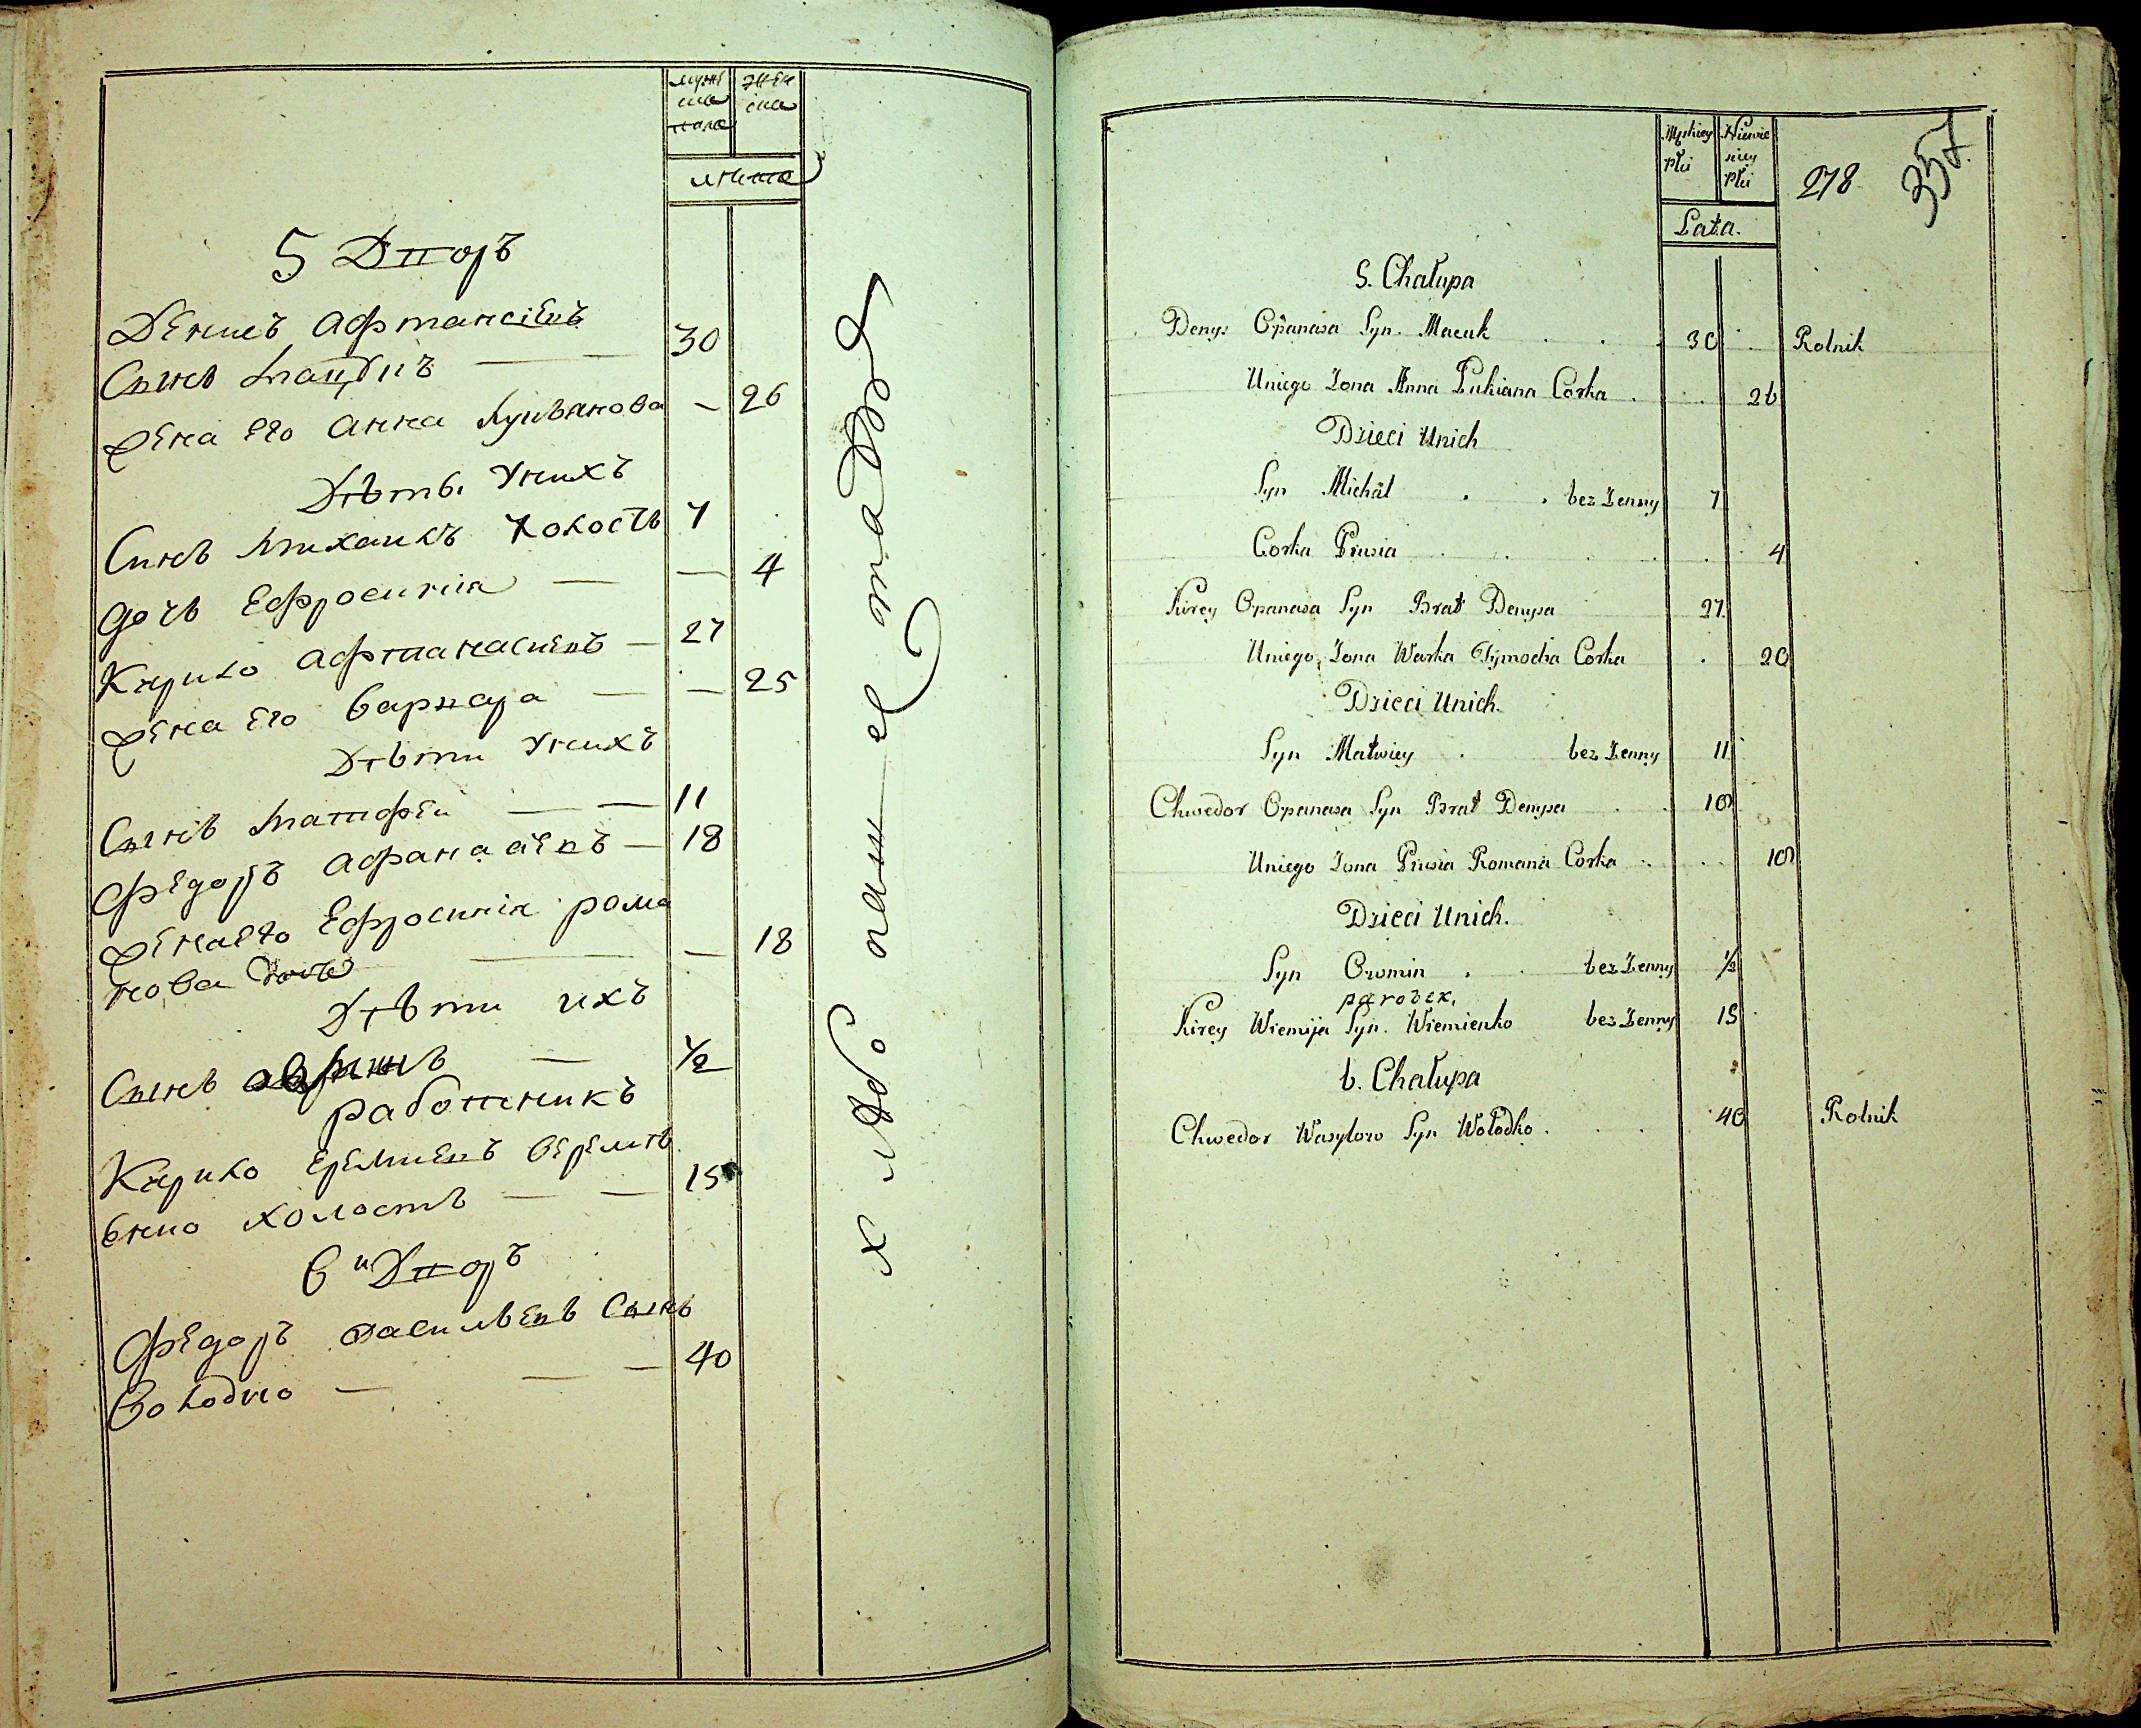 мужс
ска
пола
женс
ска
лѣта
5 Дворъ
Денисъ Афтанасіевъ
Сынъ Мацукъ — — 30
Жена его Анна Лукьянова — 26
Дѣты Унихъ
Сынъ Михаилъ Холостъ 7
Дочь Ефросинія — — 4
Кирило Афтанасиевъ — 27
Жена его Варвара — — 25
Дѣти Унихъ
Сынъ Матфей — — 11
Федоръ Афанасіевъ — 18
Жена его Ефросинія рома
нова Дочь — — 18
Дѣти ихъ
Сынъ — 1/2
работникъ
Кирило Еремиевъ Веремѣ
енко холостъ — — 15
6й Дворъ
Федоръ Васильевъ Сынъ
Володко — — — 40
хлѣбо пашец
Męskiey
Płci
Niewie
sciey
Płci
278
357.
Lata.
5. Chałupa
Denys Opanasa Syn. Macuk . . . 30 . Rolnik
Uniego Zona Anna Łukiana Corka . . . 26
Dzieci Unich
Syn Michał . . bez Zenny 7
Corka Prusia . . . . . 4
Kirey Opanasa Syn Brat Denysa 27.
Uniego Zona Warka Tymocha Corka . 20
Dzieci Unich.
Syn Matwiey . bez Zenny 11
Chwedor Opanasa Syn Brat Denysa . . 18
Uniego Zona Prusia Romana Corka . . . 18
Dzieci Unich.
Syn Owmin . . bez Zenny 1/2
parobek,
Kirey Wiemija Syn. Wiemienko bez Zenny 15
6. Chałupa
Chwedor Wasylow Syn Wołodko . . . 40 Rolnik